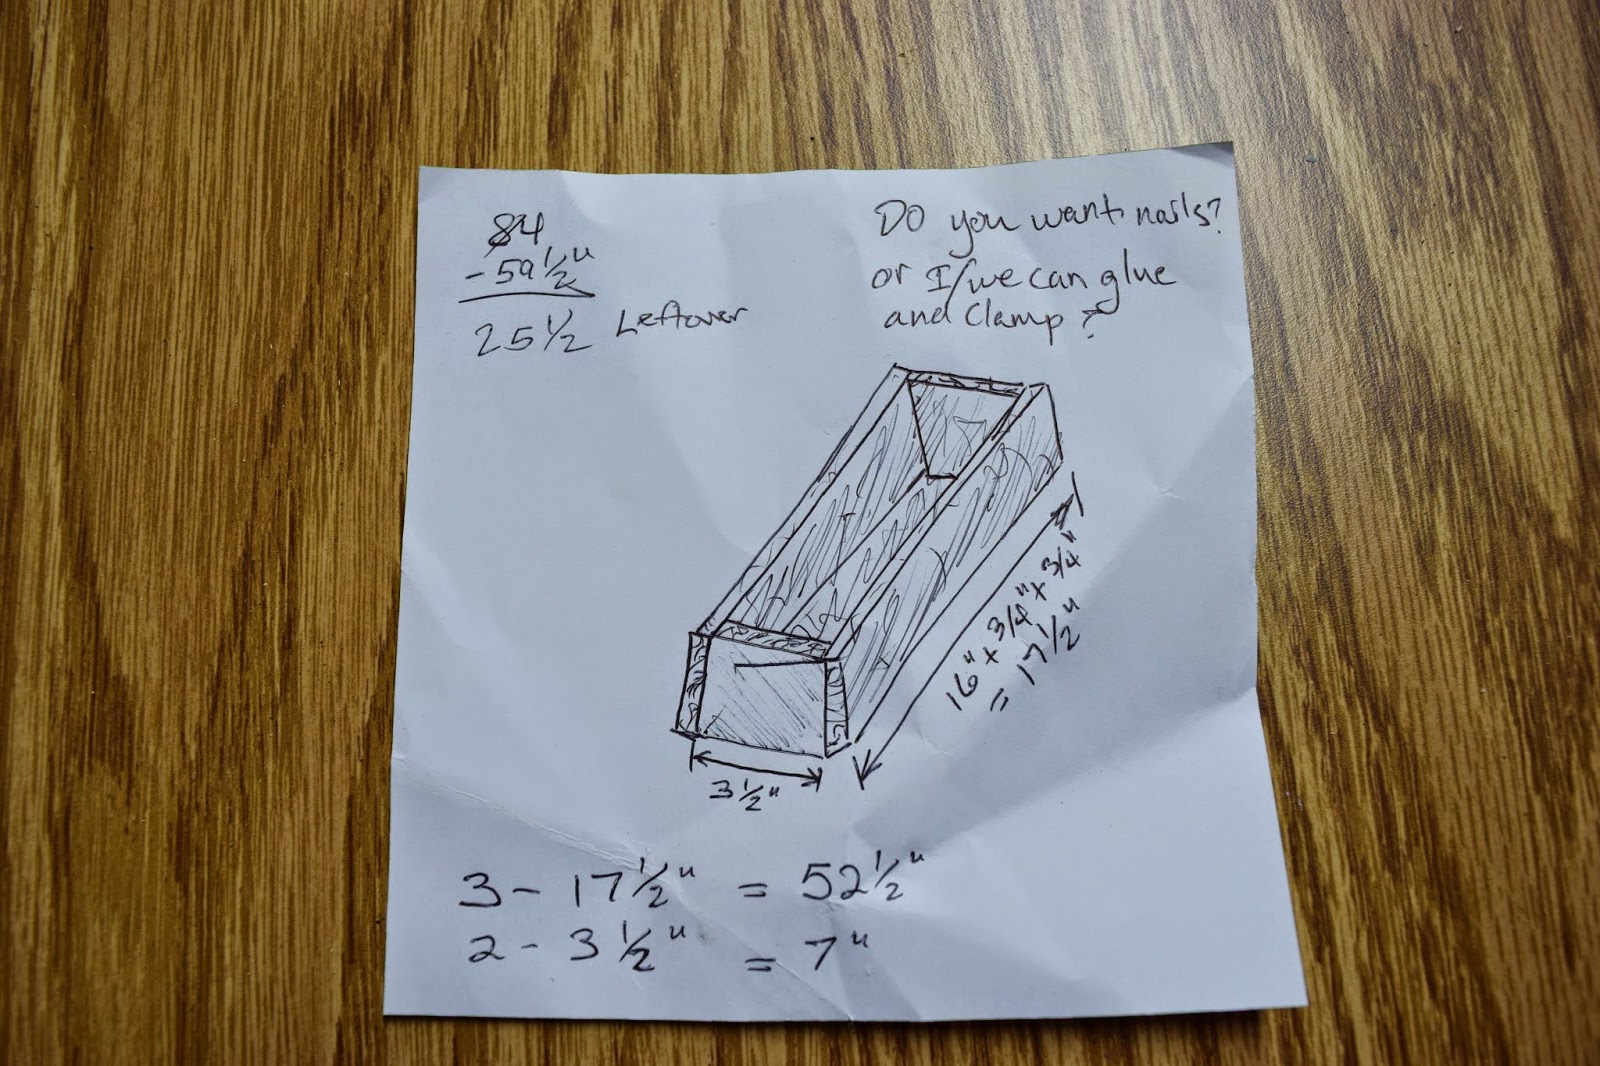 84
- 59 1/2"
25 1/2 Leftover
Do you want nails?
or I/we can glue
and Clamp?
16" + 3/4" + 3/4"
= 17 1/2"
3 1/2"
3 - 17 1/2" = 52 1/2"
2 - 3 1/2" = 7"